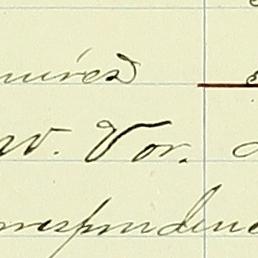 uired
w. Vor.
orrespondenc